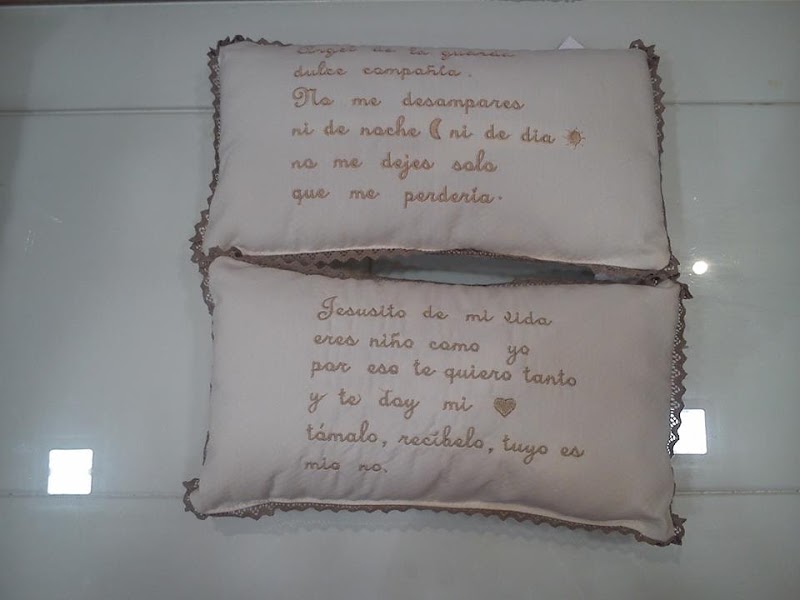 Angel de la guarda
dulce compañía.
No me desampares
ni de noche ni de dia
no me dejes solo
que me perdería.
Jesusito de mi vida
eres niño como yo
por eso te quiero tanto
y te doy mi
támalo, recíbelo, tuyo es
mio no.